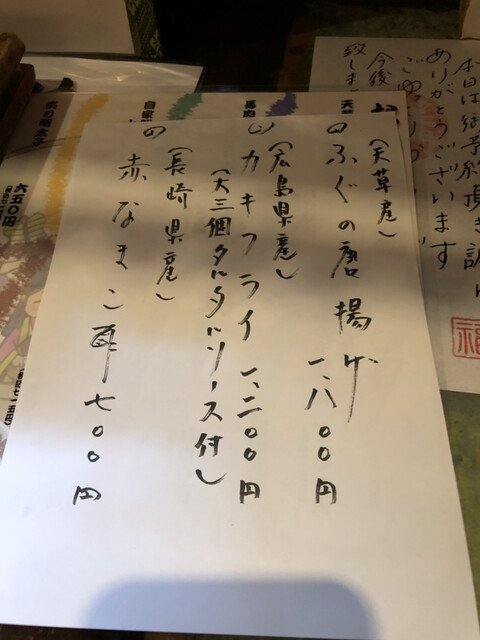 本日は御予約頂き誠に
ありがとうございます
今後
致しま
(天草産)
ふぐの唐揚げ 一、八〇〇円
(広島県産)
カキフライ 一、二〇〇円
(大三個タルタルソース付)
(長崎県産)
赤なまこ酢 七〇〇円
馬肉
自家
明太子 六五〇円